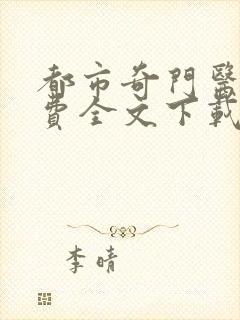 都市奇門醫
費全文下載
李晴